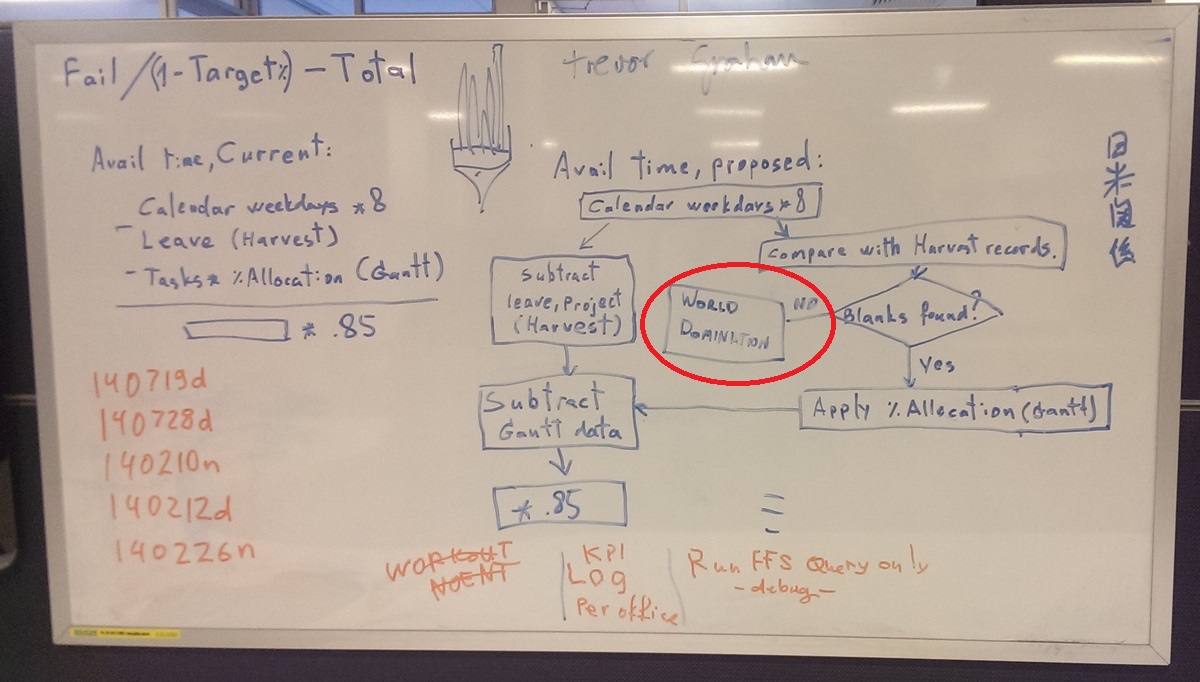 Fail/(1-Target%)-Total
trevor Graham
Avail time, Current:
Calendar weekdays *8
- Leave (Harvest)
- Tasks * %Allocation (Gantt)
* .85
140719d
140728d
140210n
140212d
140226n
Avail time, proposed:
Calendar weekdays *8
Subtract
leave, Project
(Harvest)
Subtract
Gantt data
* .85
Compare with Harvest records.
Blanks found?
NO
WORLD
DOMINATION
Yes
Apply %Allocation (Gantt)
日米関係
WORKOUT
NOENT
KPI
LOG
Per office
Run FFS Query only
-debug-